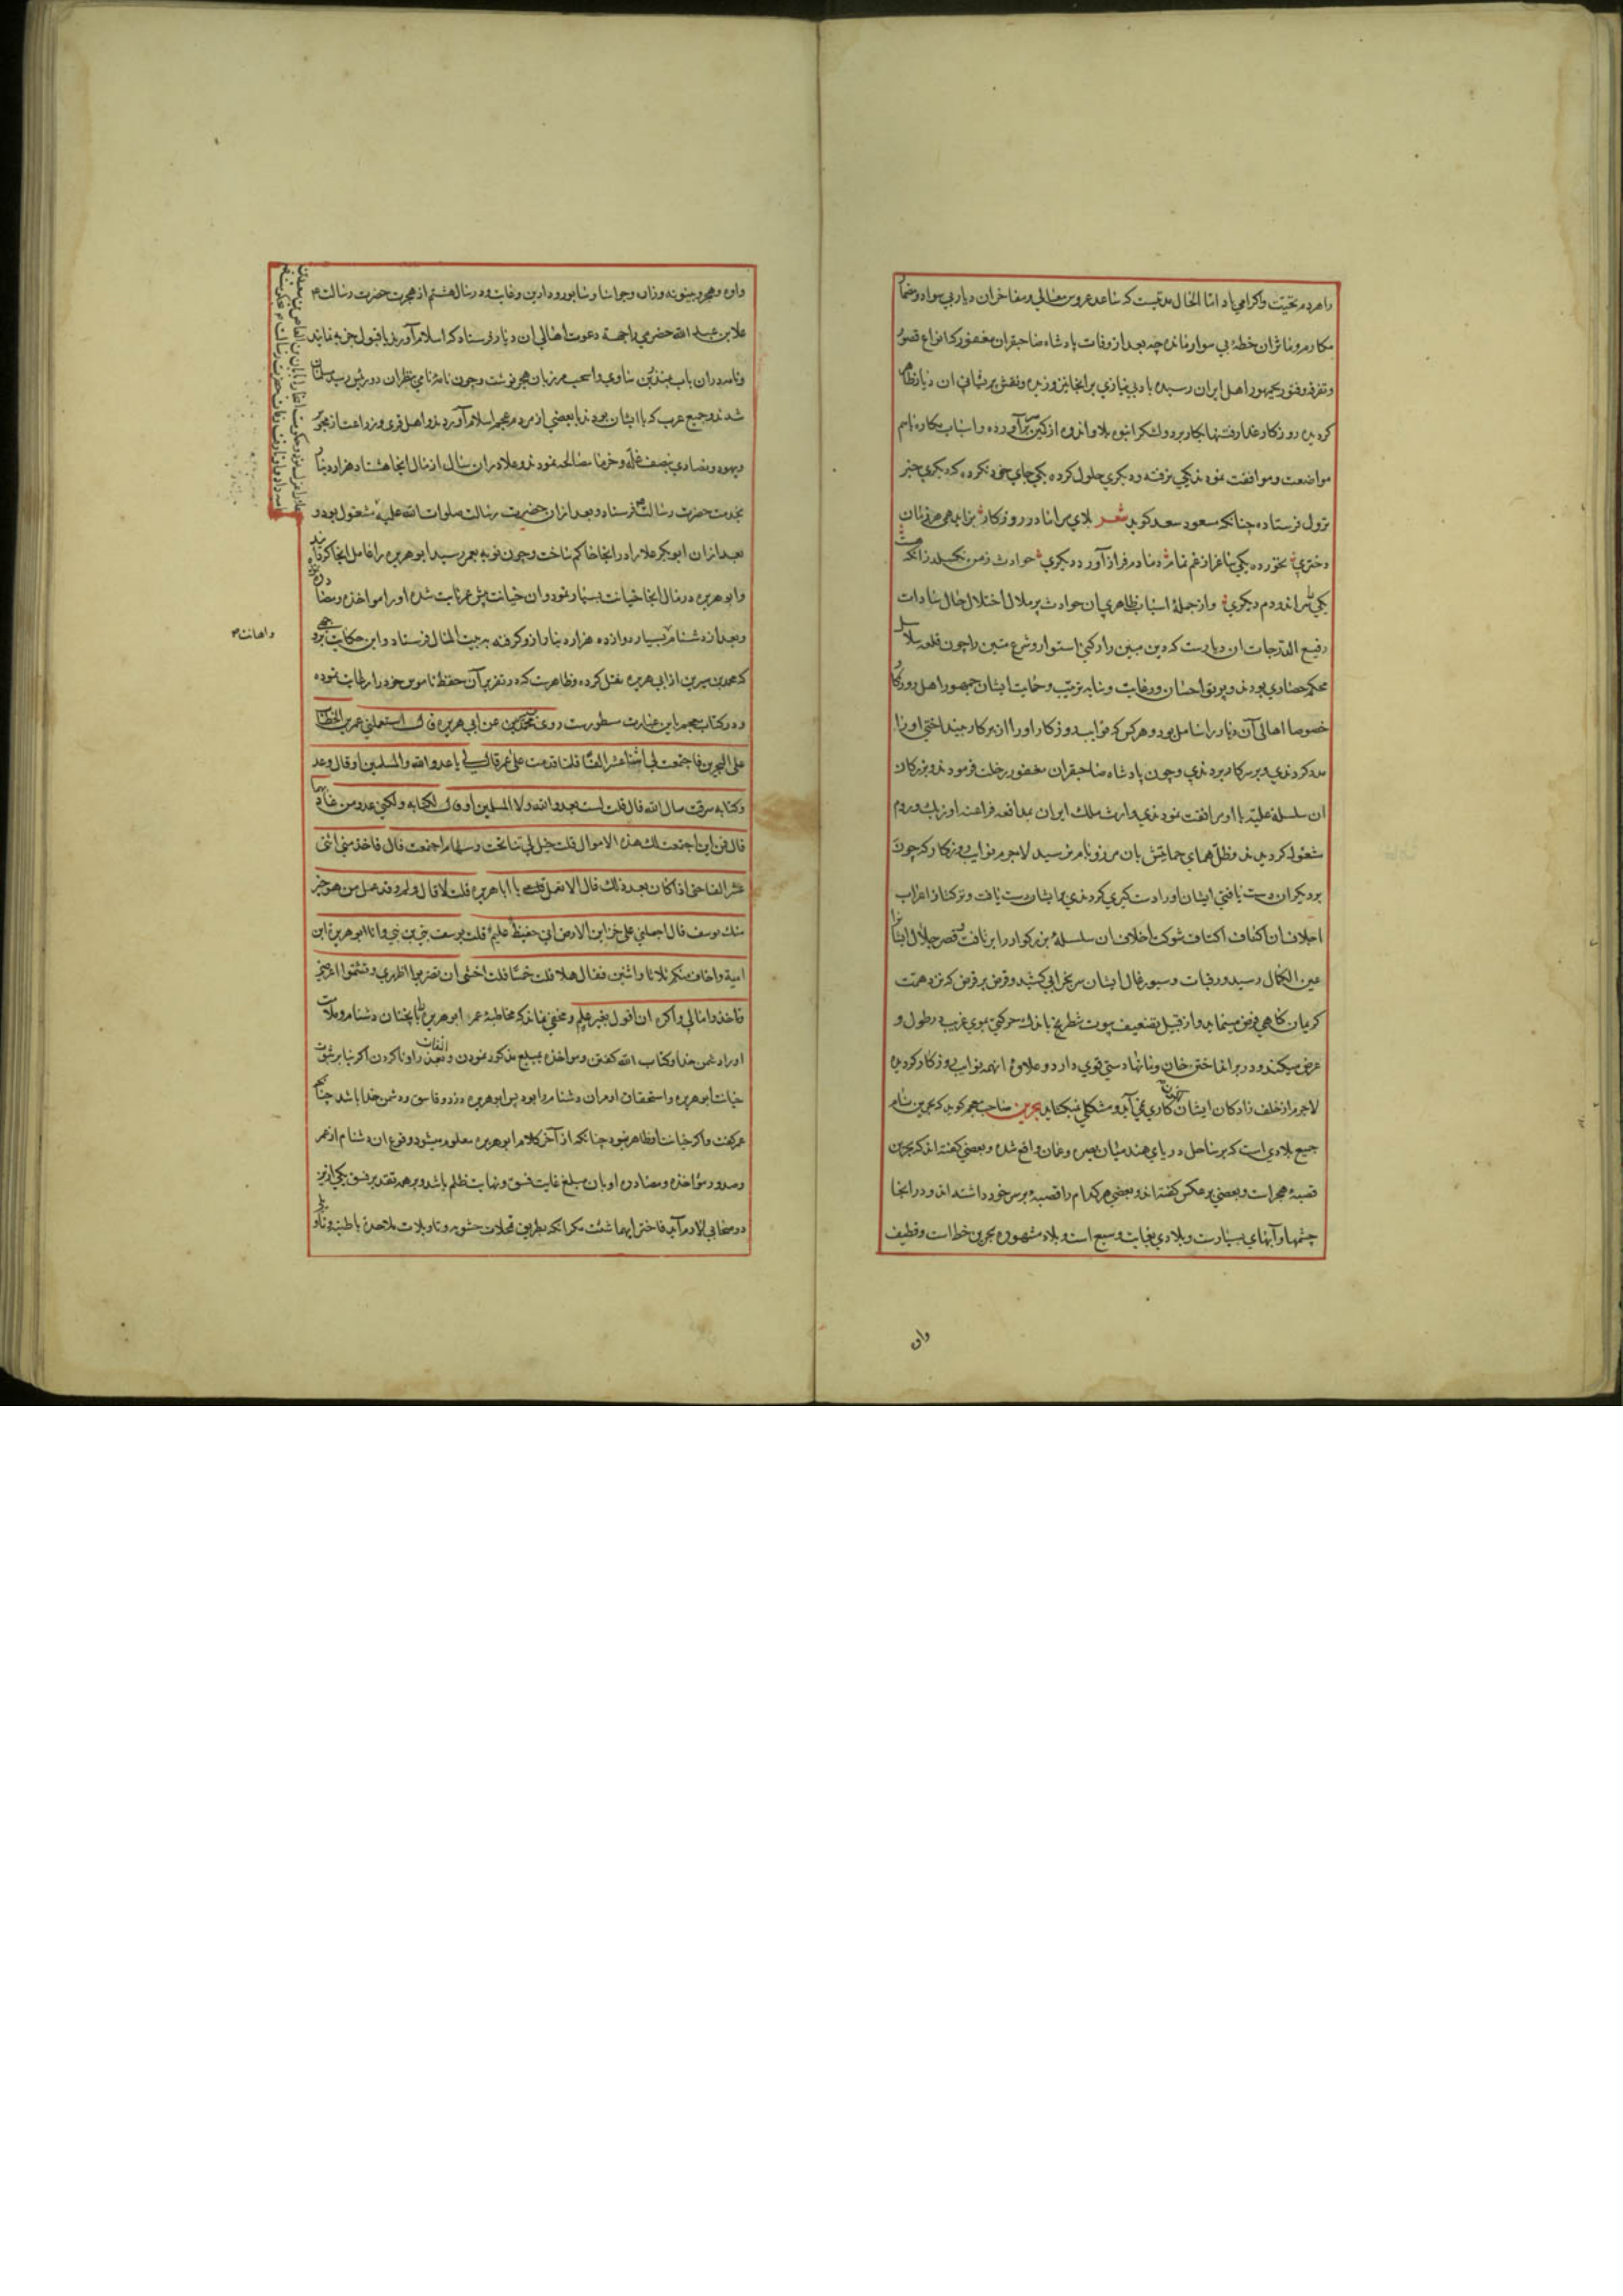 را هر دم تحیت و اکرامی باد اما الحال مدتیست که ساعد عروس معالی و مفاخر ان دیار بی سوار و مضمار
مکارم و ماثر ان خطه بی سوار مانده چه بعد از وفات پادشاه صاحبقران مغفور که انواع قصور
و تفرقه و فتور بجمهور اهل ایران رسیده باد بی نیازی بر انجا نیز وزیده و نقش پریشانی ان دیار
کردیده روزکار غدار فتنها بکار برد و لشکر انبوه بلا و اندوه از کمین برآورده و اسباب مکاره باهم
مواضعت و موافقت نمودند یکی نرفته و دیکری حلول کرده یکی جای خود نکرده که دیکری خبر
نزول فرستاده چنانکه مسعود سعد کوید شعر بلای مرا مادر روزکار بزاید همی هر زمان
دختری نخورده یکی ساغر از غم تمام دمادم فراز آورد دیکری حوادث ز من نکسلد زانکه هست
یکی را سر اندر دم دیکری و از جمله اسباب ظاهری ان حوادث پر ملال اختلال حال سادات
رفیع الدرجات ان دیارست که دین مبین را رکنی استوار و شرع متین را چون قلعه
محکم حصاری بودند و پرتو احسان و رعایت و سایه تربیت و حمایت ایشان جمهور اهل روزکار
خصوصا اهالی آن دیار را شامل بود و هر کس که نوایب روزکار او را از سر کار بینداختی او را
مدد کردندی و بر سر کار بردندی و چون پادشاه صاحبقران مغفور رحلت فرمودند و بزرکان
ان سلسله علیه با او مرافقت نمودندی وارث ملک ایران بمدافعه فراعنه اوزبک و روم
مشغول کردیدند و ظل همای حمایتش بان مرز و بام نرسید لاجرم نوایب روزکار که چون
بر دیکران دست یافتی ایشان او را دست کیری کردندی بر ایشان دست یافت و ترکتاز اعراب
اجلاف ان اکناف اکتاف شوکت اخلاف ان سلسله بزرکوار را بر تافت و قصر جلال ایشان را
عین الکمال رسید و رقبات و سیورغال ایشان سر بخرابی کشید و قرض بر قرض که نزد همت
کریمان کاهی فرض مینماید و از قبیل تضعیف بیوت شطرنج باندک حرکتی نموی غریب در طول و
عرض میکند و در بر انداختن خان و مانها دستی قوی دارد و علاوه انهمه نوایب روزکار کردیده
لاجرم از خلف زادکان ایشان اکنون کاری نمی آید و مشکلی نمیکشاید بحرین صاحب معجم کوید که بحرین نام
جمیع بلادی است که بر ساحل دریای هند میان بصره و عمان واقع شده و بعضی کفته اند که بحرین
قصبه هجر است و بعضی بر عکس کفته اند و بعضی هر کدام را قصبه بر سر خود داشته اند و در انجا
چشمها و آبهای بسیارست و بلادی بغایت وسیع است و بلاد مشهوره بحرین خط است و قطیف
وان
واره و هجر و بینونه و زاره و جواثا و سابور و دارین و غابه و در سال هشتم از هجرت حضرت رسالت م
علا بن عبد الله حضرمی را بجهة دعوت اهالی ان دیار فرستاد که اسلام آورند یا قبول جزیه نمایند
و نامه در ان باب بمنذر بن ساوی و اسیحب مرزبان هجر نوشت و چون نامه نامی بنظر ان دو رئیس رسید مسلمان
شدند و جمیع عرب که با ایشان بودند با بعضی از مردم عجم اسلام آوردند و اهل قری و زراعت از مجوس
و یهود و نصاری بنصف غله و خرما مصالحه نمودند و علا در ان سال از مال انجا هشتاد هزار دینار
بخدمت حضرت رسالت م فرستاد و بعد از ان حضرت رسالت صلوات الله علیه مشغول بود و
بعد از ان ابوبکر علا را در انجا حاکم ساخت و چون نوبه بعمر رسید ابوهریره را عامل انجا کردانید
و ابوهریره در مال انجا خیانت بسیار نمود و ان خیانت پیش عمر ثابت شده او را مواخذه و مصادره
و بعد از دشنام بسیار دوازده هزار دینار ازو کرفته به بیت المال فرستاد و این حکایت
که محمد بن سیرین از ابی هریره نقل کرده و ظاهرست که در تقریر آن حفظ ناموس خود را رعایت نموده
و در کتاب معجم باین عبارت مسطورست روی محمد بن سیرین عن ابی هریره قال استعملنی عمر بن الخطاب
علی البحرین فاجتمعت لی اثنا عشر الفا فلما قدمت علی عمر قال لی یا عدو الله والمسلمین او قال و عدو
کتابه سرقت مال الله قال قلت لست بعدو الله ولا المسلمین او قال لکتابه ولکنی عدو من عاداهما
قال فمن این اجتمعت لک هذه الاموال قلت خیل لی تناتجت و سهام اجتمعت قال فاخذ منی اثنی
عشر الفا حتی اذا کان بعد ذلک قال الا تعمل قلت یا ابا هریره قلت لا قال ولم وقد عمل من هو خیر
منک یوسف قال اجعلنی علی خزاین الارض انی حفیظ علیم قلت یوسف نبی بن نبی وانا ابوهریره ابن
امیه واخاف منکم ثلاثا واثنین فقال هلا قلت خمسا قلت اخشی ان تضربوا ظهری وتشتموا عرضی
وتاخذوا مالی واکره ان اقول بغیر علم و مخفی نماند که مخاطبه عمر ابوهریره را بانچنان دشنام و ملامت
او را دشمن خدا و کتاب الله کفتن و مواخذه بمبلغ مذکور نمودن و التفات بعذر او ناکردن اکر بنا بر ثبوت
خیانت ابوهریره و استحقاق او مر ان دشنام را بود پس ابوهریره دزد و فاسق و دشمن خدا باشد چنانکه
عمر کفت و اکر خیانت او ظاهر نبود چنانکه از آخر کلام ابوهریره معلوم میشود وقوع ان دشنام از عمر
و صدور مؤاخذه و مصادره او بان مبلغ غایت فسق و نهایت ظلم باشد و بر هر تقدیر فسق یکی ازین
دو صحابی لازم آید فاختر ایهما شئت مکر انکه بطریق تمحلات حشویه و تاویلات ملاحده باطنیه
و اهانت م